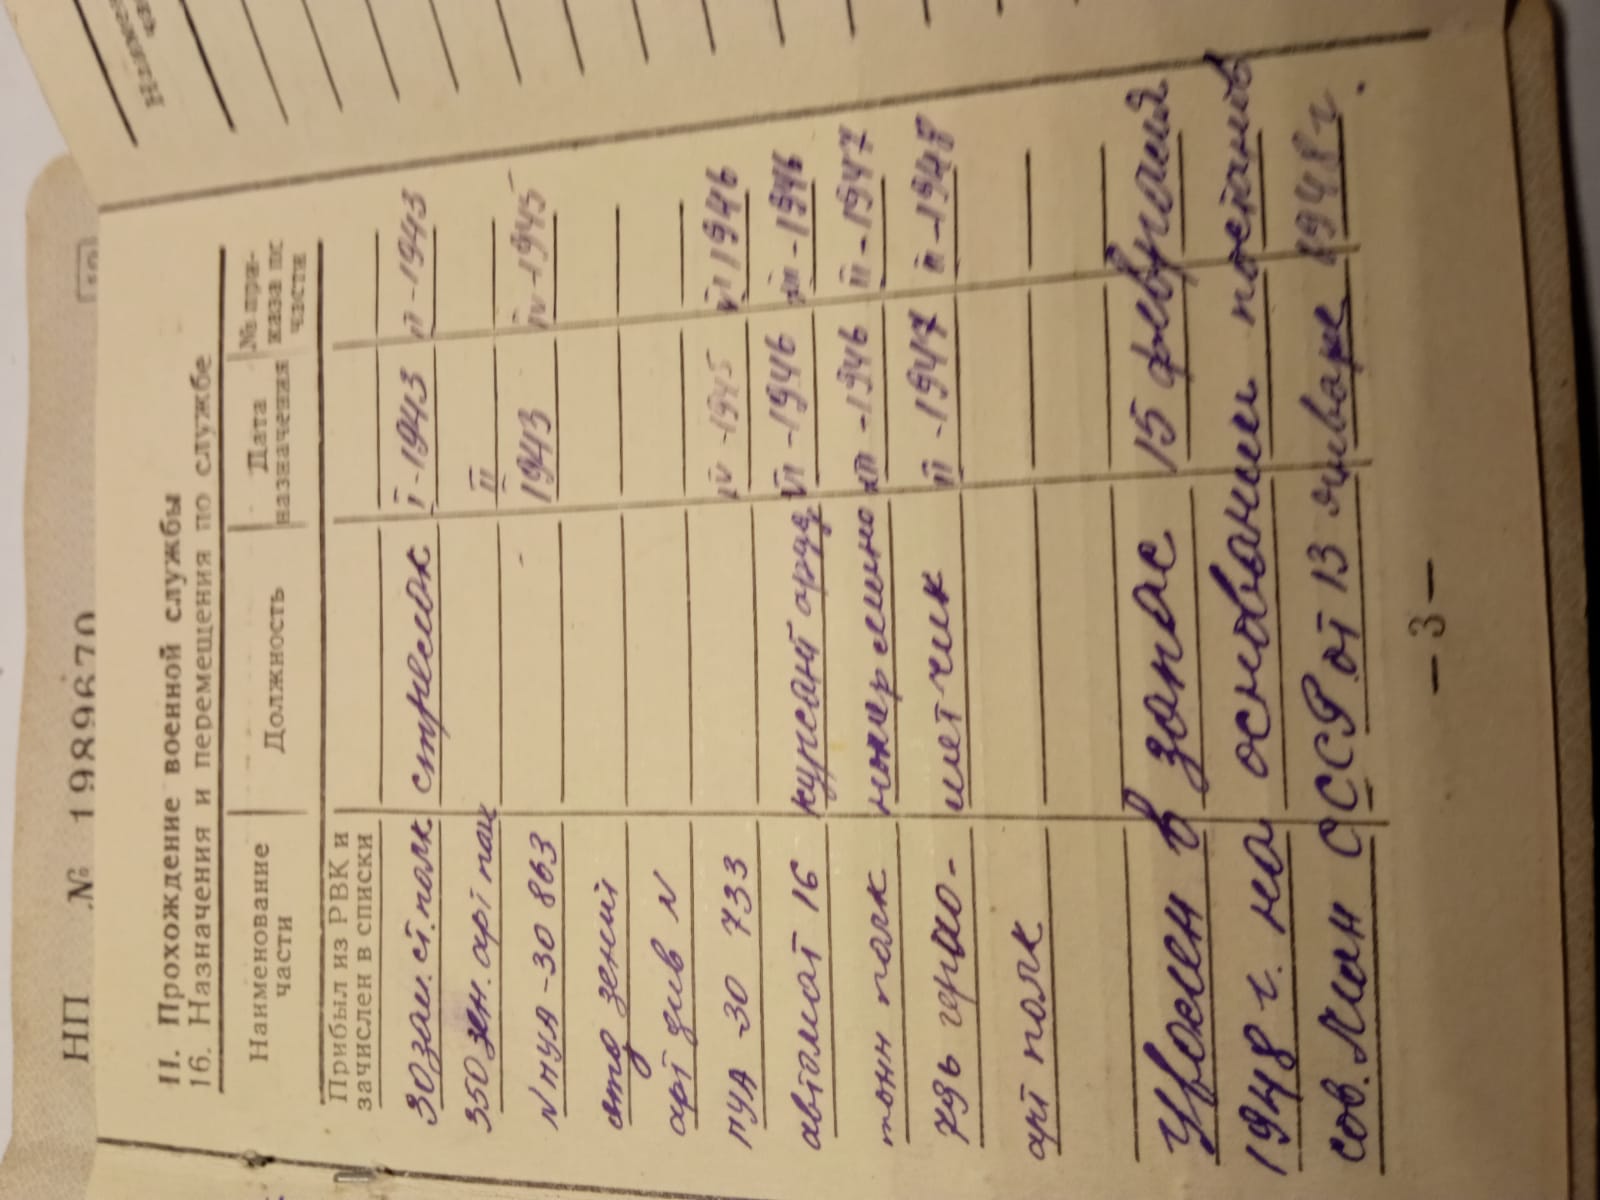 НП № 198967
II. Прохождение военной службы
16. Назначения и перемещения по службе
Наименование части Должность Дата назначения № приказа по части
Прибыл из РВК и
зачислен в списки
30 зап. ст. полк стрелок I-1943 II-1943
350 зен. арт пол II
N ПУА-30 863 1943 IV-1945
отд зенит
арт див N
ПУА-30 733 IV-1945 VI 1946
автомат 16 курсант VI-1946 XII-1946
полк номер XII-1946 II-1947
мет-чик II-1947 II-1948
арт полк
Уволен в запас 15 февраля
1948 г. на основании постанов
сов. Мин СССР от 13 января 1948 г.
-3-